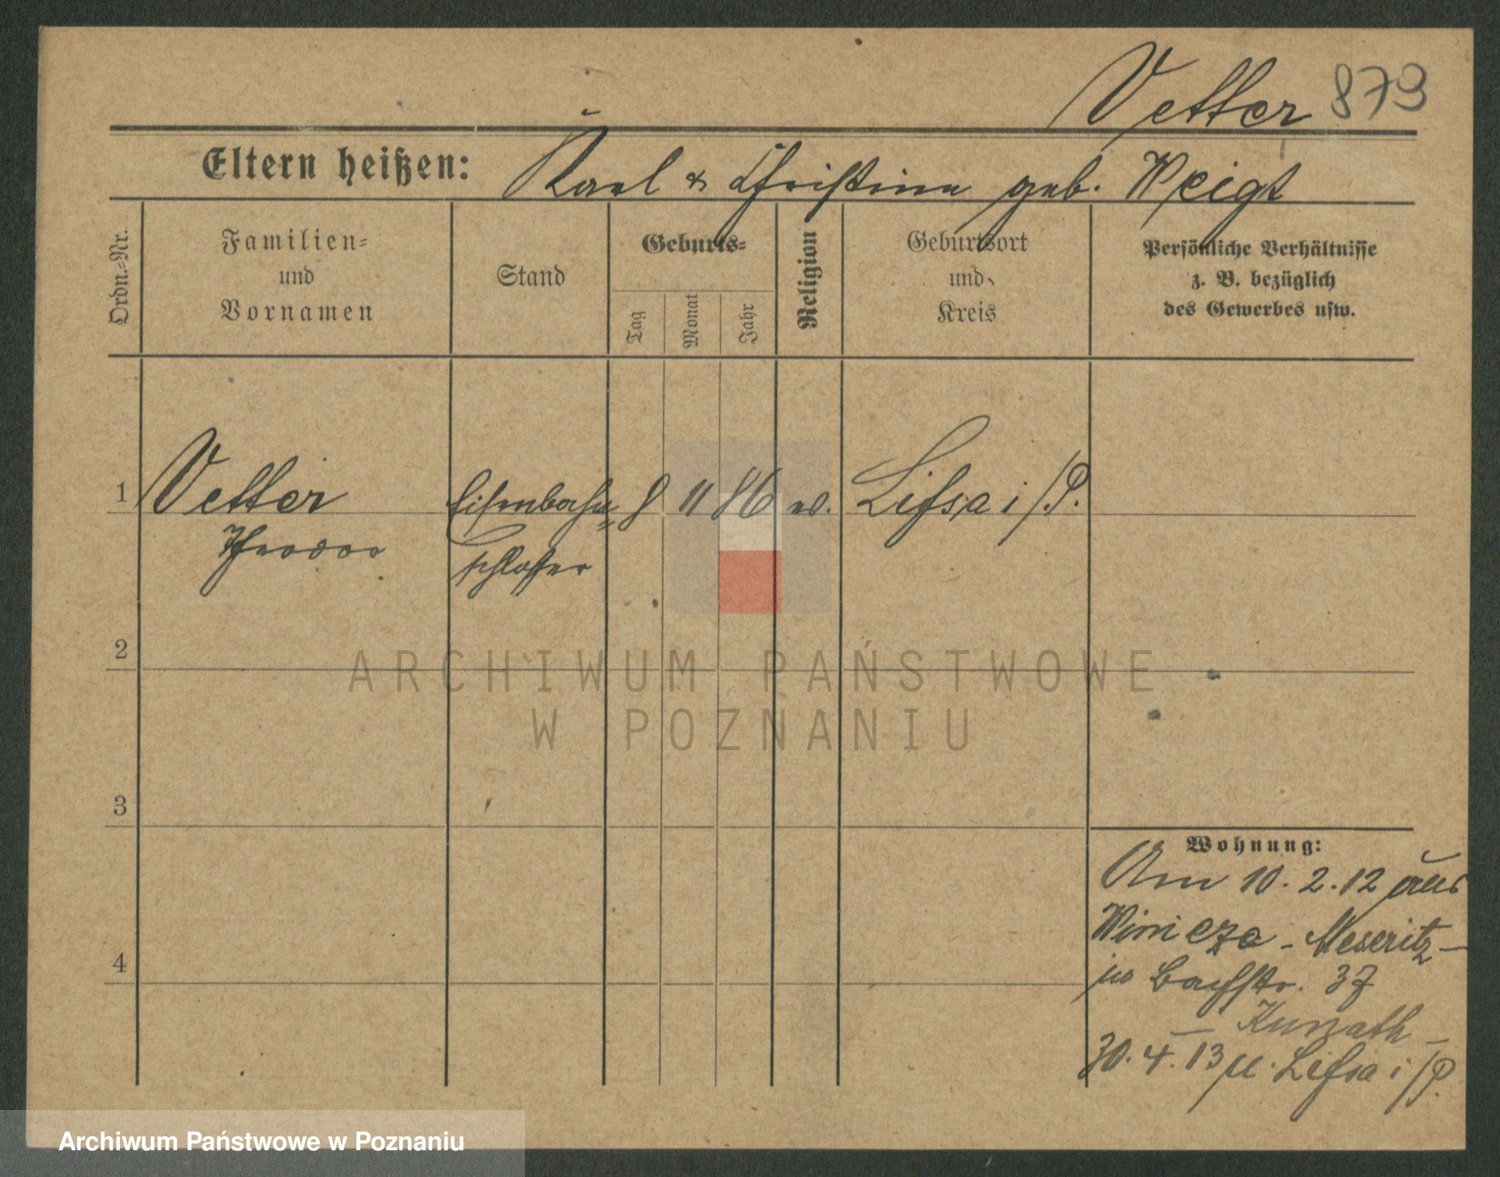 Vetter 879
Eltern heißen: Karl & Christine geb. Weigt
Ordn.-Nr.
Familien- und Vornamen
Stand
Geburts-
Tag Monat Jahr
Religion
Geburtsort und Kreis
Persönliche Verhältnisse
z. B. bezüglich
des Gewerbes usw.
1 Vetter Eisenbahn- 8 11 86 ev. Lissa i/P.
Theodor schlosser
2
3
4
Wohnung:
Am 10.2.12 aus
- Meseritz -
in Bachstr. 37
Kunath -
30.4.13 u. Lissa i/P.
ARCHIWUM PAŃSTWOWE
W POZNANIU
Archiwum Państwowe w Poznaniu